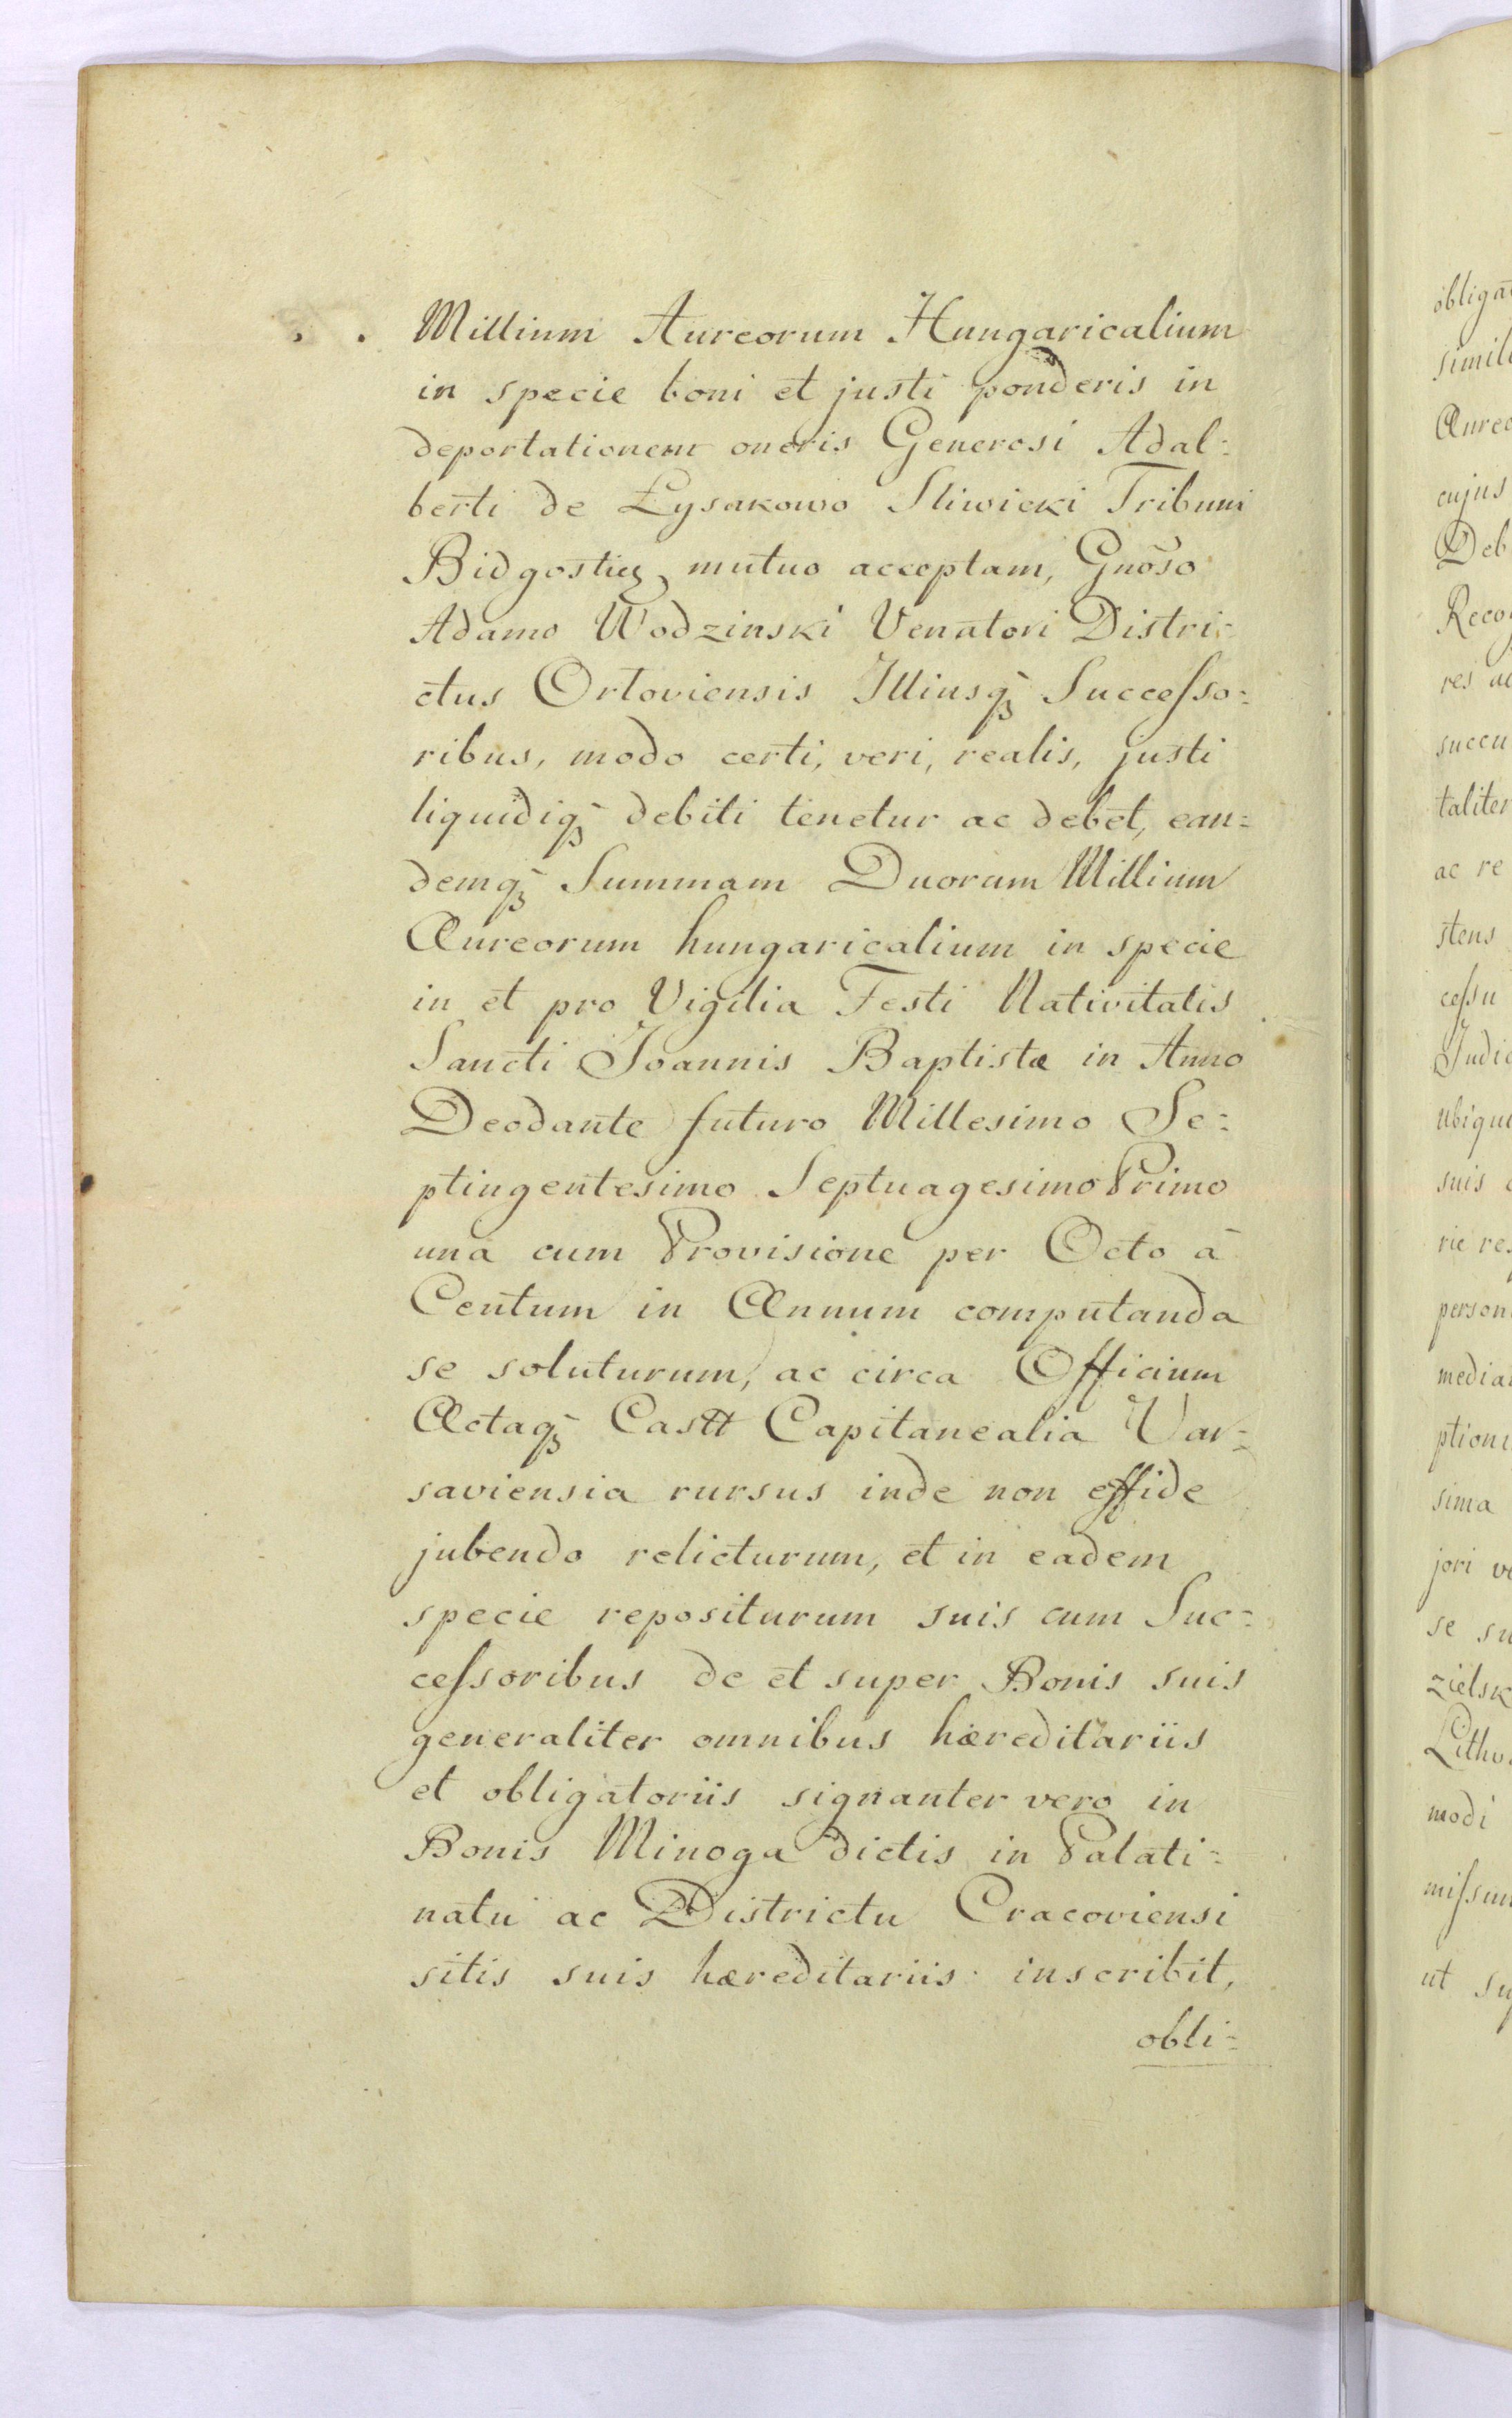 Millium Aureorum Hungaricalium
in specie boni et justi ponderis in
deportationem oneris Generosi Adal=
berti de Łysakowo Sliwicki Tribuni
Bidgostien mutuo acceptam, Gnoso
Adamo Wodzinski Venatori Distri=
ctus Orłoviensis Illiusqꝫ Successo=
ribus, modo certi, veri, realis, justi
liquidiqꝫ debiti tenetur ac debet, ean=
demqꝫ Summam Duorum Millium
Aureorum hungaricalium in specie
in et pro Vigilia Festi Nativitatis
Sancti Joannis Baptistæ in Anno
Deodante futuro Millesimo Se=
ptingentesimo Septuagesimo Primo
una cum Provisione per Octo à
Centum in Annum computanda
se soluturum, ac circa Officium
Actaqꝫ Castt Capitanealia Var=
saviensia rursus inde non effide
jubendo relicturum, et in eadem
specie repositurum suis cum Suc=
cessoribus de et super Bonis suis
generaliter omnibus hæreditariis
et obligatoriis signanter vero in
Bonis Minoga dictis in Palati=
natu ac Districtu Cracoviensi
sitis suis hæreditariis inscribit,
obli=